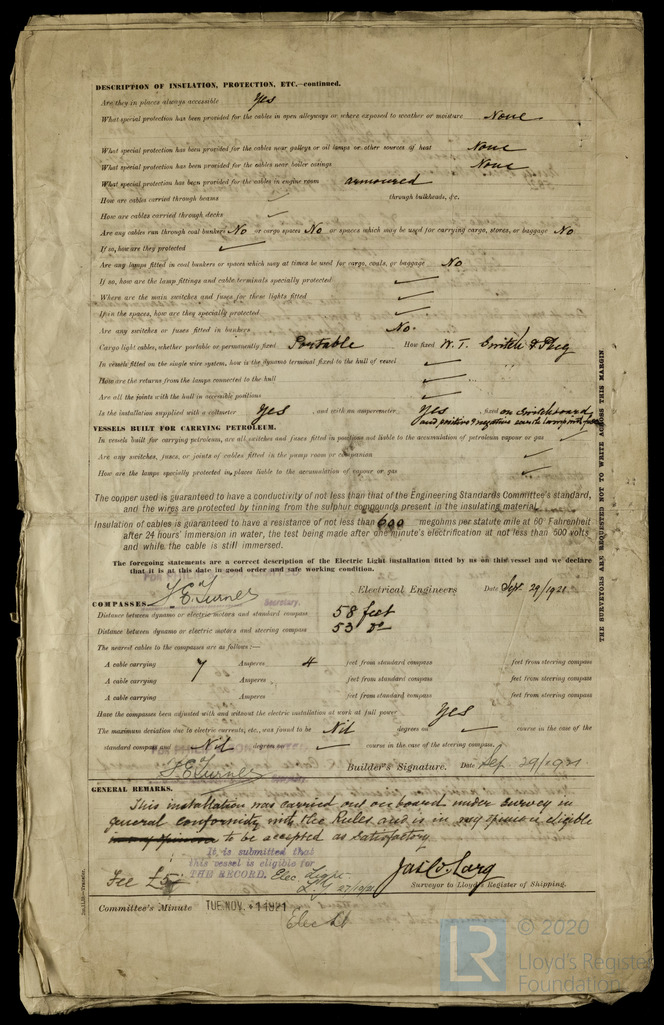 DESCRIPTION OF INSULATION, PROTECTION, ETC.—continued.
Are they in places always accessible Yes
What special protection has been provided for the cables in open alleyways or where exposed to weather or moisture None
What special protection has been provided for the cables near galleys or oil lamps or other sources of heat None
What special protection has been provided for the cables near boiler casings None
What special protection has been provided for the cables in engine room armoured
How are cables carried through beams ✓ through bulkheads, &c.
How are cables carried through decks ✓
Are any cables run through coal bunkers No or cargo spaces No or spaces which may be used for carrying cargo, stores, or baggage No
If so, how are they protected ✓
Are any lamps fitted in coal bunkers or spaces which may at times be used for cargo, coals, or baggage No
If so, how are the lamp fittings and cable terminals specially protected ✓
Where are the main switches and fuses for these lights fitted ✓
If in the spaces, how are they specially protected ✓
Are any switches or fuses fitted in bunkers No.
Cargo light cables, whether portable or permanently fixed Portable How fixed W.T. Switch & Plug
In vessels fitted on the single wire system, how is the dynamo terminal fixed to the hull of vessel ✓
How are the returns from the lamps connected to the hull ✓
Are all the joints with the hull in accessible positions ✓
Is the installation supplied with a voltmeter Yes , and with an amperemeter Yes , fixed on Switchboard
and positive & negative earth lamps with fuses
VESSELS BUILT FOR CARRYING PETROLEUM.
In vessels built for carrying petroleum, are all switches and fuses fitted in positions not liable to the accumulation of petroleum vapour or gas ✓
Are any switches, fuses, or joints of cables fitted in the pump room or companion ✓
How are the lamps specially protected in places liable to the accumulation of vapour or gas ✓
The copper used is guaranteed to have a conductivity of not less than that of the Engineering Standards Committee's standard,
and the wires are protected by tinning from the sulphur compounds present in the insulating material.
Insulation of cables is guaranteed to have a resistance of not less than 600 megohms per statute mile at 60° Fahrenheit
after 24 hours' immersion in water, the test being made after one minute's electrification at not less than 500 volts
and while the cable is still immersed.
The foregoing statements are a correct description of the Electric Light installation fitted by us on this vessel and we declare
that it is at this date in good order and safe working condition.
S. E. Turner Electrical Engineers Date Sept 29/1921
Secretary.
COMPASSES.
Distance between dynamo or electric motors and standard compass 58 feet
Distance between dynamo or electric motors and steering compass 53 do
The nearest cables to the compasses are as follows:—
A cable carrying 7 Amperes 4 feet from standard compass feet from steering compass
A cable carrying Amperes feet from standard compass feet from steering compass
A cable carrying Amperes feet from standard compass feet from steering compass
Have the compasses been adjusted with and without the electric installation at work at full power Yes
The maximum deviation due to electric currents, etc., was found to be Nil degrees on ✓ course in the case of the
standard compass and Nil degrees on ✓ course in the case of the steering compass.
S. E. Turner Builder's Signature. Date Sep. 29/1921
GENERAL REMARKS.
This installation was carried out on board under survey in
general conformity with the Rules and is in my opinion eligible
to be accepted as satisfactory.
It is submitted that
this vessel is eligible for
THE RECORD. Elec. Light
Fee £5
Surveyor to Lloyd's Register of Shipping.
Committee's Minute TUE NOV. 1 1921
Elec Lt
THE SURVEYORS ARE REQUESTED NOT TO WRITE ACROSS THIS MARGIN
LR
© 2020
Lloyd's Register
Foundation